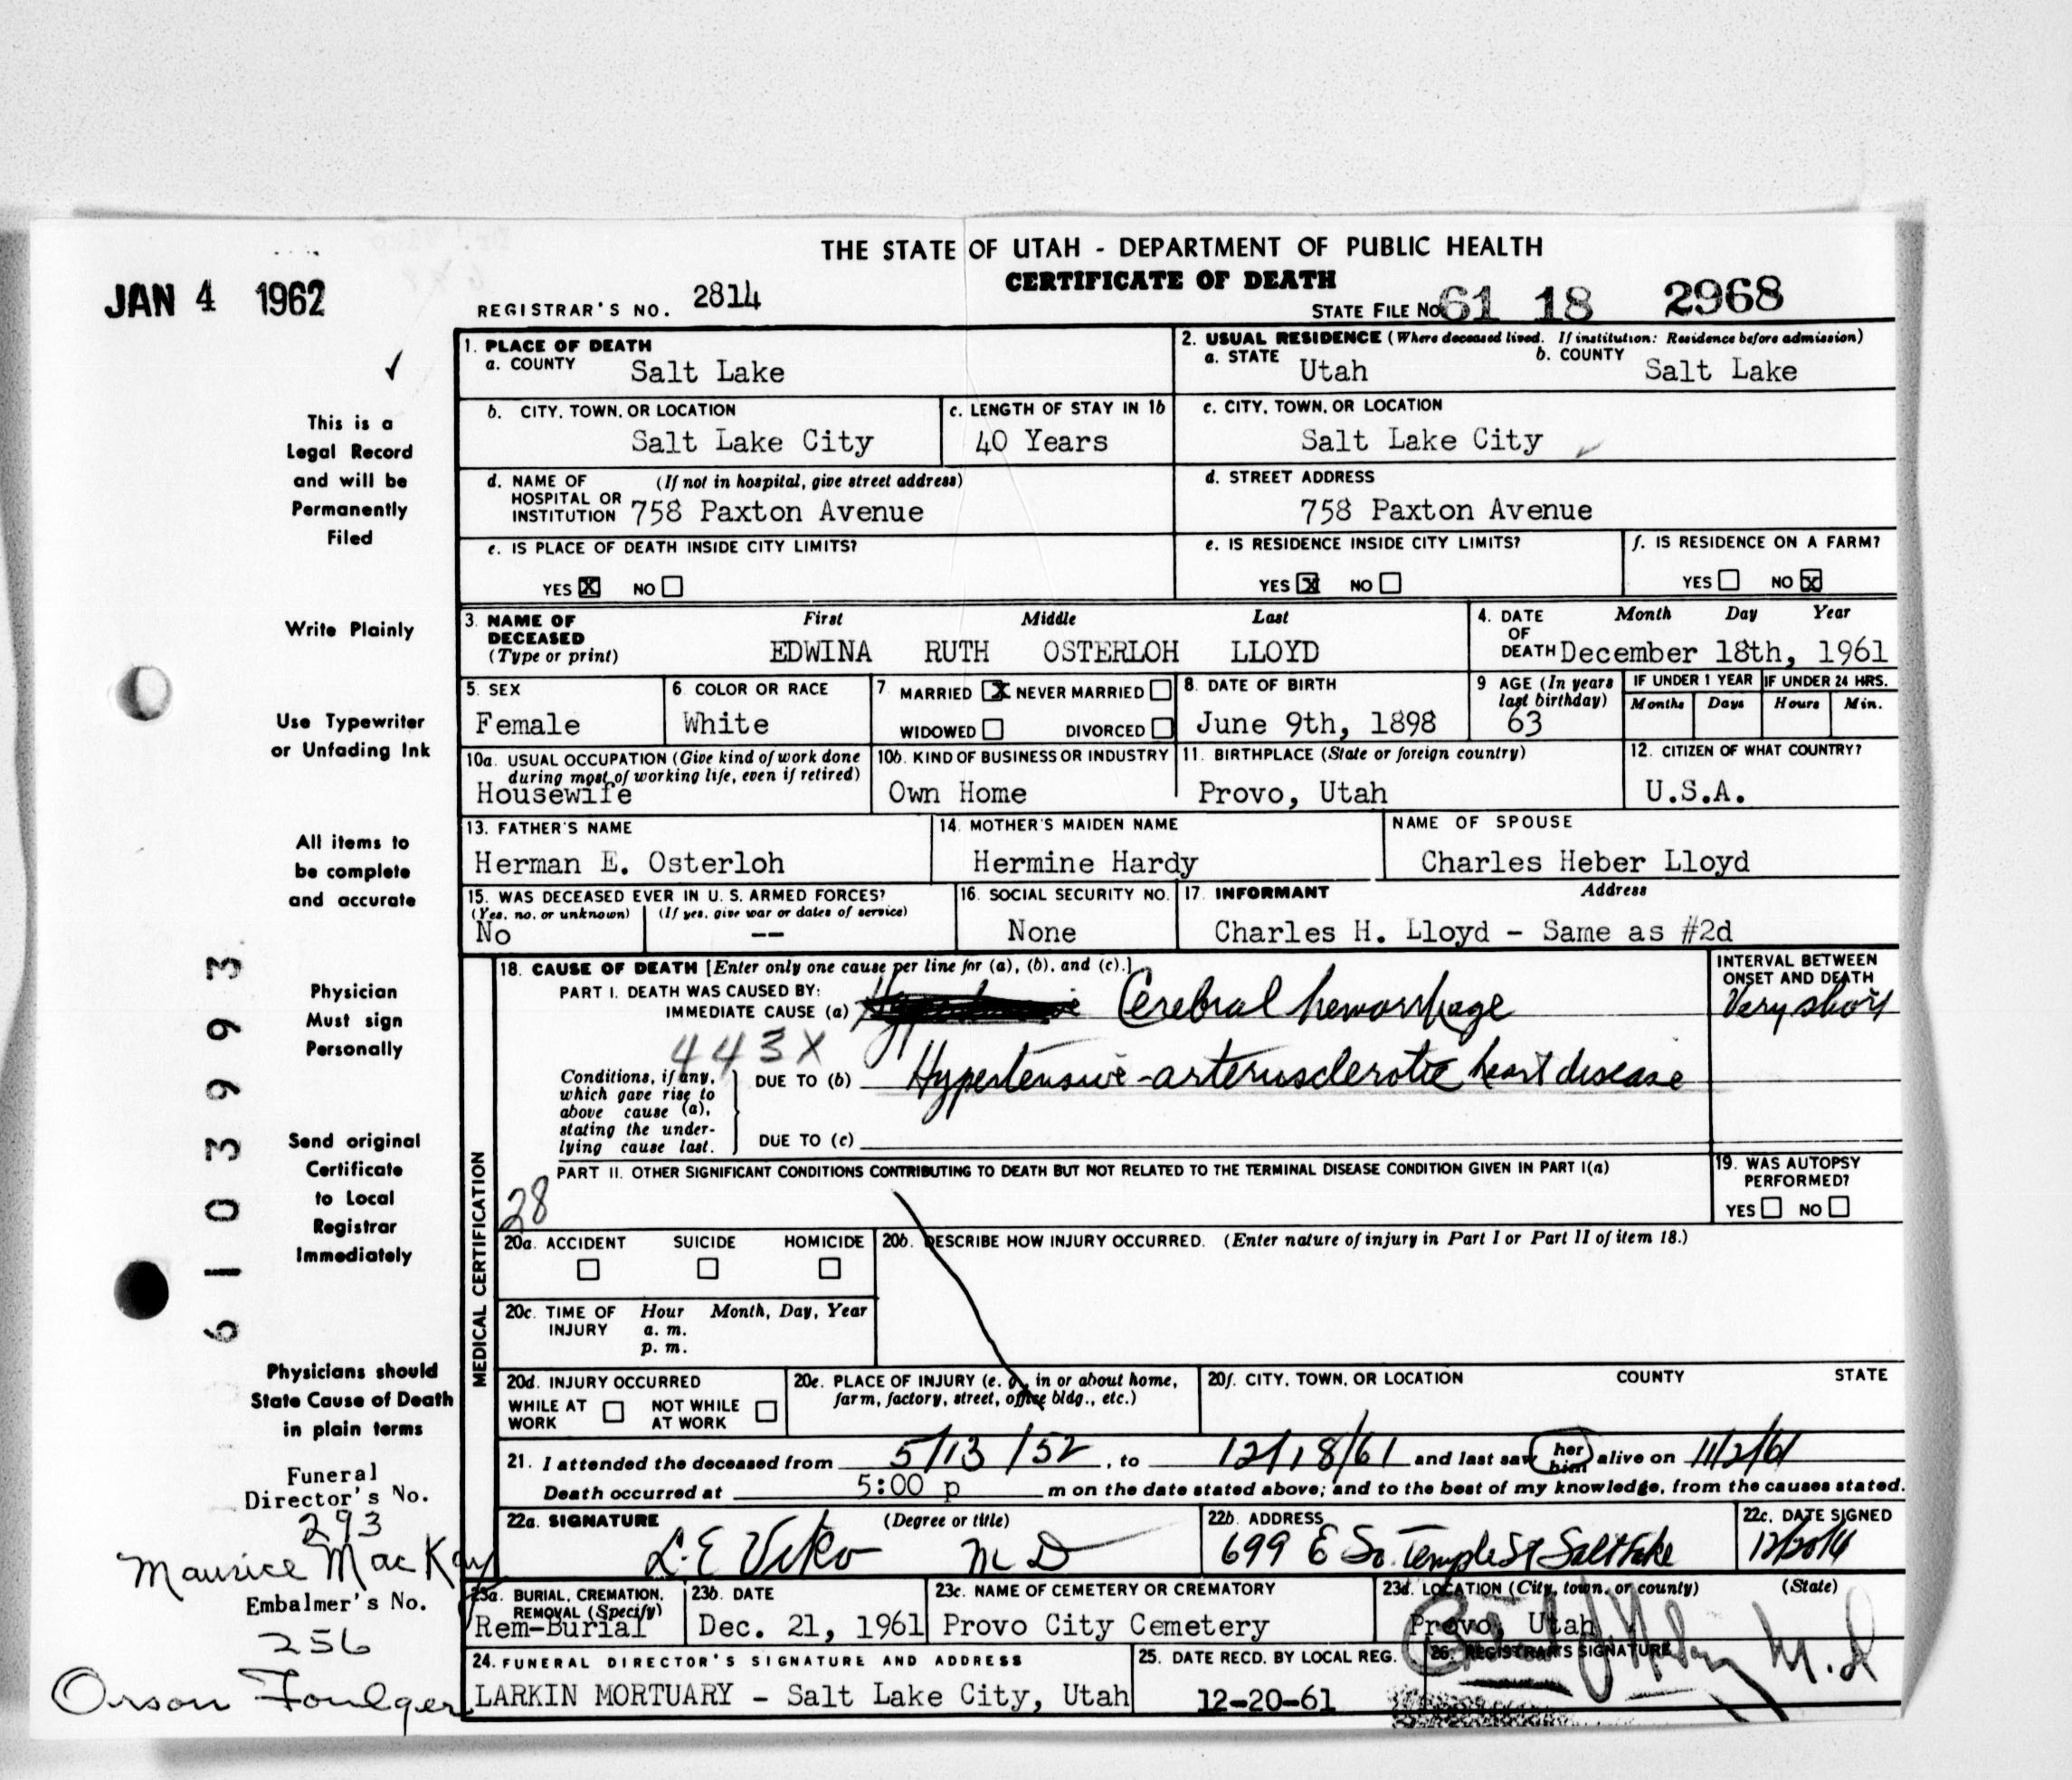 THE STATE OF UTAH - DEPARTMENT OF PUBLIC HEALTH
CERTIFICATE OF DEATH
JAN 4 1962
REGISTRAR'S NO. 2814
STATE FILE NO. 61 18 2968
This is a
Legal Record
and will be
Permanently
Filed
Write Plainly
Use Typewriter
or Unfading Ink
All items to
be complete
and accurate
Physician
Must sign
Personally
Send original
Certificate
to Local
Registrar
Immediately
Physicians should
State Cause of Death
in plain terms
6103993
Funeral
Director's No.
293
Maurice MacKay
Embalmer's No.
256
Orson Foulger
1. PLACE OF DEATH
a. COUNTY Salt Lake
2. USUAL RESIDENCE (Where deceased lived. If institution: Residence before admission)
a. STATE Utah b. COUNTY Salt Lake
b. CITY, TOWN, OR LOCATION Salt Lake City
c. LENGTH OF STAY IN 1b 40 Years
c. CITY, TOWN, OR LOCATION Salt Lake City
d. NAME OF HOSPITAL OR INSTITUTION (If not in hospital, give street address) 758 Paxton Avenue
d. STREET ADDRESS 758 Paxton Avenue
e. IS PLACE OF DEATH INSIDE CITY LIMITS?
YES X NO
e. IS RESIDENCE INSIDE CITY LIMITS?
YES X NO
f. IS RESIDENCE ON A FARM?
YES NO X
3. NAME OF DECEASED (Type or print) First Middle Last
EDWINA RUTH OSTERLOH LLOYD
4. DATE OF DEATH Month Day Year
December 18th, 1961
5. SEX Female
6 COLOR OR RACE White
7 MARRIED X NEVER MARRIED
WIDOWED DIVORCED
8. DATE OF BIRTH June 9th, 1898
9 AGE (In years last birthday) 63
IF UNDER 1 YEAR Months Days
IF UNDER 24 HRS. Hours Min.
10a. USUAL OCCUPATION (Give kind of work done during most of working life, even if retired) Housewife
10b. KIND OF BUSINESS OR INDUSTRY Own Home
11. BIRTHPLACE (State or foreign country) Provo, Utah
12. CITIZEN OF WHAT COUNTRY? U.S.A.
13. FATHER'S NAME Herman E. Osterloh
14. MOTHER'S MAIDEN NAME Hermine Hardy
NAME OF SPOUSE Charles Heber Lloyd
15. WAS DECEASED EVER IN U. S. ARMED FORCES?
(Yes, no, or unknown) No (If yes, give war or dates of service) --
16. SOCIAL SECURITY NO. None
17. INFORMANT Address
Charles H. Lloyd - Same as #2d
MEDICAL CERTIFICATION
18. CAUSE OF DEATH [Enter only one cause per line for (a), (b), and (c).]
PART I. DEATH WAS CAUSED BY:
IMMEDIATE CAUSE (a) Cerebral hemorrhage
INTERVAL BETWEEN ONSET AND DEATH
Very short
443X
Conditions, if any, which gave rise to above cause (a), stating the underlying cause last.
DUE TO (b) Hypertensive-arteriosclerotic heart disease
DUE TO (c)
PART II. OTHER SIGNIFICANT CONDITIONS CONTRIBUTING TO DEATH BUT NOT RELATED TO THE TERMINAL DISEASE CONDITION GIVEN IN PART I(a)
28
19. WAS AUTOPSY PERFORMED?
YES NO
20a. ACCIDENT SUICIDE HOMICIDE
20b. DESCRIBE HOW INJURY OCCURRED. (Enter nature of injury in Part I or Part II of item 18.)
20c. TIME OF INJURY Hour Month, Day, Year
a. m.
p. m.
20d. INJURY OCCURRED
WHILE AT WORK NOT WHILE AT WORK
20e. PLACE OF INJURY (e. g., in or about home, farm, factory, street, office bldg., etc.)
20f. CITY, TOWN, OR LOCATION COUNTY STATE
21. I attended the deceased from 5/13/52, to 12/18/61 and last saw her him alive on 11/2/61
Death occurred at 5:00 p m on the date stated above; and to the best of my knowledge, from the causes stated.
22a. SIGNATURE (Degree or title)
L. E Viko M D
22b. ADDRESS
699 E So. Temple St Salt Lake
22c. DATE SIGNED
12/20/61
23a. BURIAL, CREMATION, REMOVAL (Specify) Rem-Burial
23b. DATE Dec. 21, 1961
23c. NAME OF CEMETERY OR CREMATORY Provo City Cemetery
23d. LOCATION (City, town, or county) (State)
Provo, Utah
24. FUNERAL DIRECTOR'S SIGNATURE AND ADDRESS
LARKIN MORTUARY - Salt Lake City, Utah
25. DATE RECD. BY LOCAL REG.
12-20-61
26. REGISTRAR'S SIGNATURE
M.D